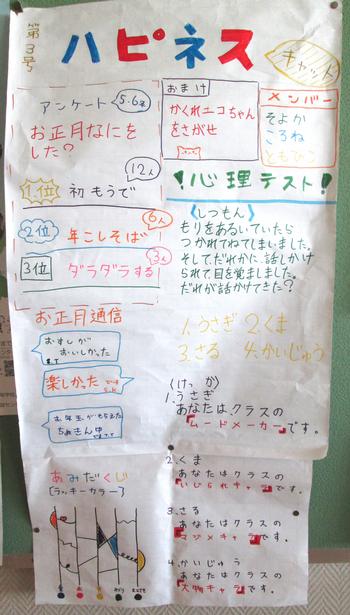 第3号
ハピネス
キャット
アンケート 5・6年
お正月なにを
した?
12人
1位 初もうで
6人
2位 年こしそば
3人
3位 ダラダラする
おまけ
かくれニコちゃん
をさがせ
メンバー
そよか
ころね
!心理テスト!
《しつもん》
もりをあるいていたら
つかれてねてしまいました。
そしてだれかに話しかけ
られて目を覚ましました。
だれが話かけてきた?
1.うさぎ 2.くま
3.さる 4.かいじゅう
〈けっか〉
1.うさぎ
あなたはクラスの
『ムードメーカー』です。
2.くま
あなたはクラスの
『いじられキャラ』です。
3.さる
あなたはクラスの
『マジメキャラ』です。
4.かいじゅう
あなたはクラスの
『大物キャラ』です。
お正月通信
おすしが
おいしかった
楽しかった
あみだくじ
[ラッキーカラー]